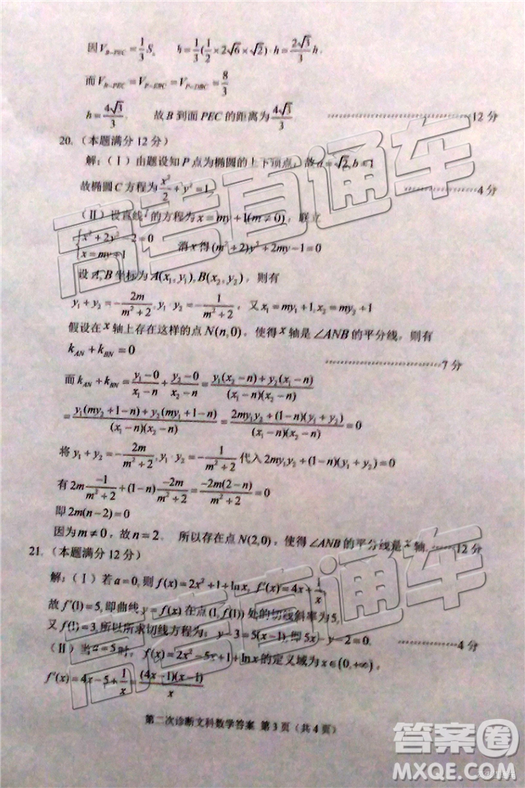 因V_{B-PEC}=\frac{1}{3}S h=\frac{1}{3}(\frac{1}{2}×2√6×√2)·h=\frac{2√3}{3}h.
而V_{B-PEC}=V_{P-EBC}=\frac{8}{3}
h=\frac{4√3}{3}. 故B到面PEC的距离为\frac{4√3}{3} ………………12分
20.(本题满分12分)
解:(Ⅰ)由题设知P点为椭圆的上下顶点,故a=√2,b=1
故椭圆C方程为\frac{x^2}{2}+y^2=1 ………………4分
(Ⅱ)设直线l的方程为x=my+1(m≠0),联立
{x^2+2y^2-2=0 x=my+1 消x得(m^2+2)y^2+2my-1=0
设A,B坐标为A(x_1,y_1),B(x_2,y_2),则有
y_1+y_2=-\frac{2m}{m^2+2},y_1·y_2=-\frac{1}{m^2+2},又x_1=my_1+1,x_2=my_2+1
假设在x轴上存在这样的点N(n,0),使得x轴是∠ANB的平分线,则有
k_{AN}+k_{BN}=0 ………………7分
而k_{AN}+k_{BN}=\frac{y_1-0}{x_1-n}+\frac{y_2-0}{x_2-n}=\frac{y_1(x_2-n)+y_2(x_1-n)}{(x_1-n)(x_2-n)}
=\frac{y_1(my_2+1-n)+y_2(my_1+1-n)}{(x_1-n)(x_2-n)}=\frac{2my_1y_2+(1-n)(y_1+y_2)}{(x_1-n)(x_2-n)}=0
将y_1+y_2=-\frac{2m}{m^2+2},y_1·y_2=-\frac{1}{m^2+2}代入2my_1y_2+(1-n)(y_1+y_2)=0
有2m\frac{-1}{m^2+2}+(1-n)\frac{-2m}{m^2+2}=\frac{-2m(2-n)}{m^2+2}=0
即2m(n-2)=0
因为m≠0,故n=2. 所以存在点N(2,0),使得∠ANB的平分线是x轴.………12分
21.(本题满分12分)
解:(Ⅰ)若a=0,则f(x)=2x^2+1+lnx,f'(x)=4x+\frac{1}{x}
故f'(1)=5,即曲线y=f(x)在点(1,f(1))处的切线斜率为5,
又f(1)=3,所以所求切线方程为:y-3=5(x-1),即5x-y-2=0. ………4分
(Ⅱ)当a=-5时,f(x)=2x^2-5x+1+lnx的定义域为(0,+∞),
f'(x)=4x-5+\frac{1}{x}=\frac{(4x-1)(x-1)}{x}
第二次诊断文科数学答案 第3页(共4页)
高考直通车
高考直通车
高考直通车
答案圈
MXQE.COM